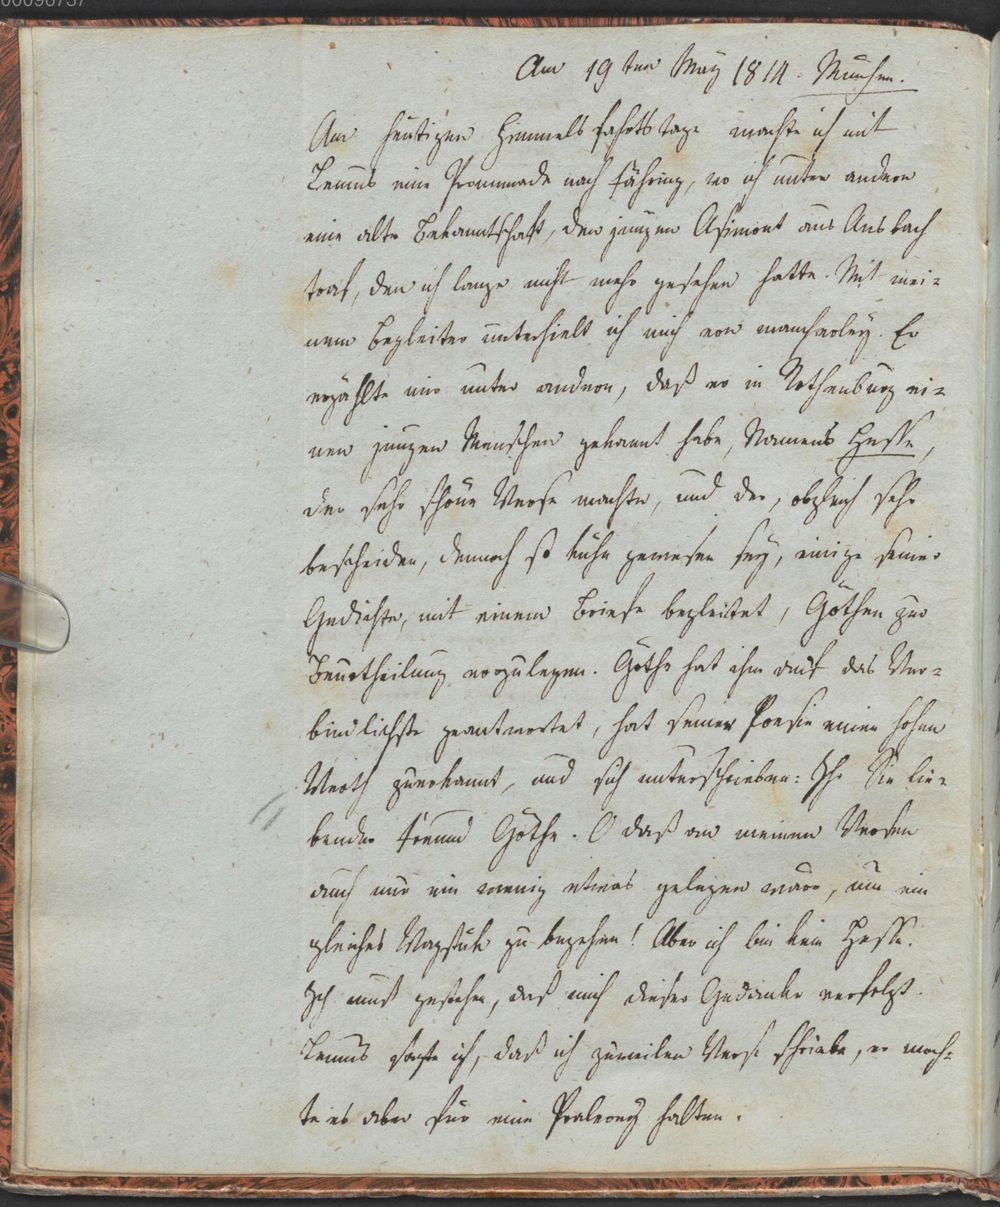 00096737
Am 19ten May 1814. München.
Am heutigen Himmelsfahrtstage machte ich mit
Lemus eine Prommnade nach Fähring, wo ich unter andern
eine alte Bekanntschaft, den jungen Asimont aus Ansbach
traf, den ich lange nicht mehr gesehen hatte. Mit mei-
nem Begleiter unterhielt ich mich von mancherley. Er
erzählte mir unter andern, daß er in Rothenburg ei-
nen jungen Menschen gekannt habe, Namens Hesse,
der sehr schöne Verse machte, und der, obgleich sehr
bescheiden, dennoch so kühn gewesen sey, einige seiner
Gedichte, mit einem Briefe begleitet, Göthen zur
Beurtheilung vorzulegen. Göthe hat ihm auf das Ver-
bindlichste geantwortet, hat seiner Poesie einen hohen
Werth zuerkannt, und sich unterschrieben: Ihr Sie lie-
bender Freund Göthe. O daß an meinen Versen
auch nur ein wenig etwas gelegen wäre, um ein
gleiches Wagstük zu begehen! Aber ich bin kein Hesse.
Ich muß gestehen, daß mich dieser Gedanke verfolgt.
Lemus sagte ich, daß ich zuweilen Verse schriebe, er moch-
te es aber für eine Pralerey halten.